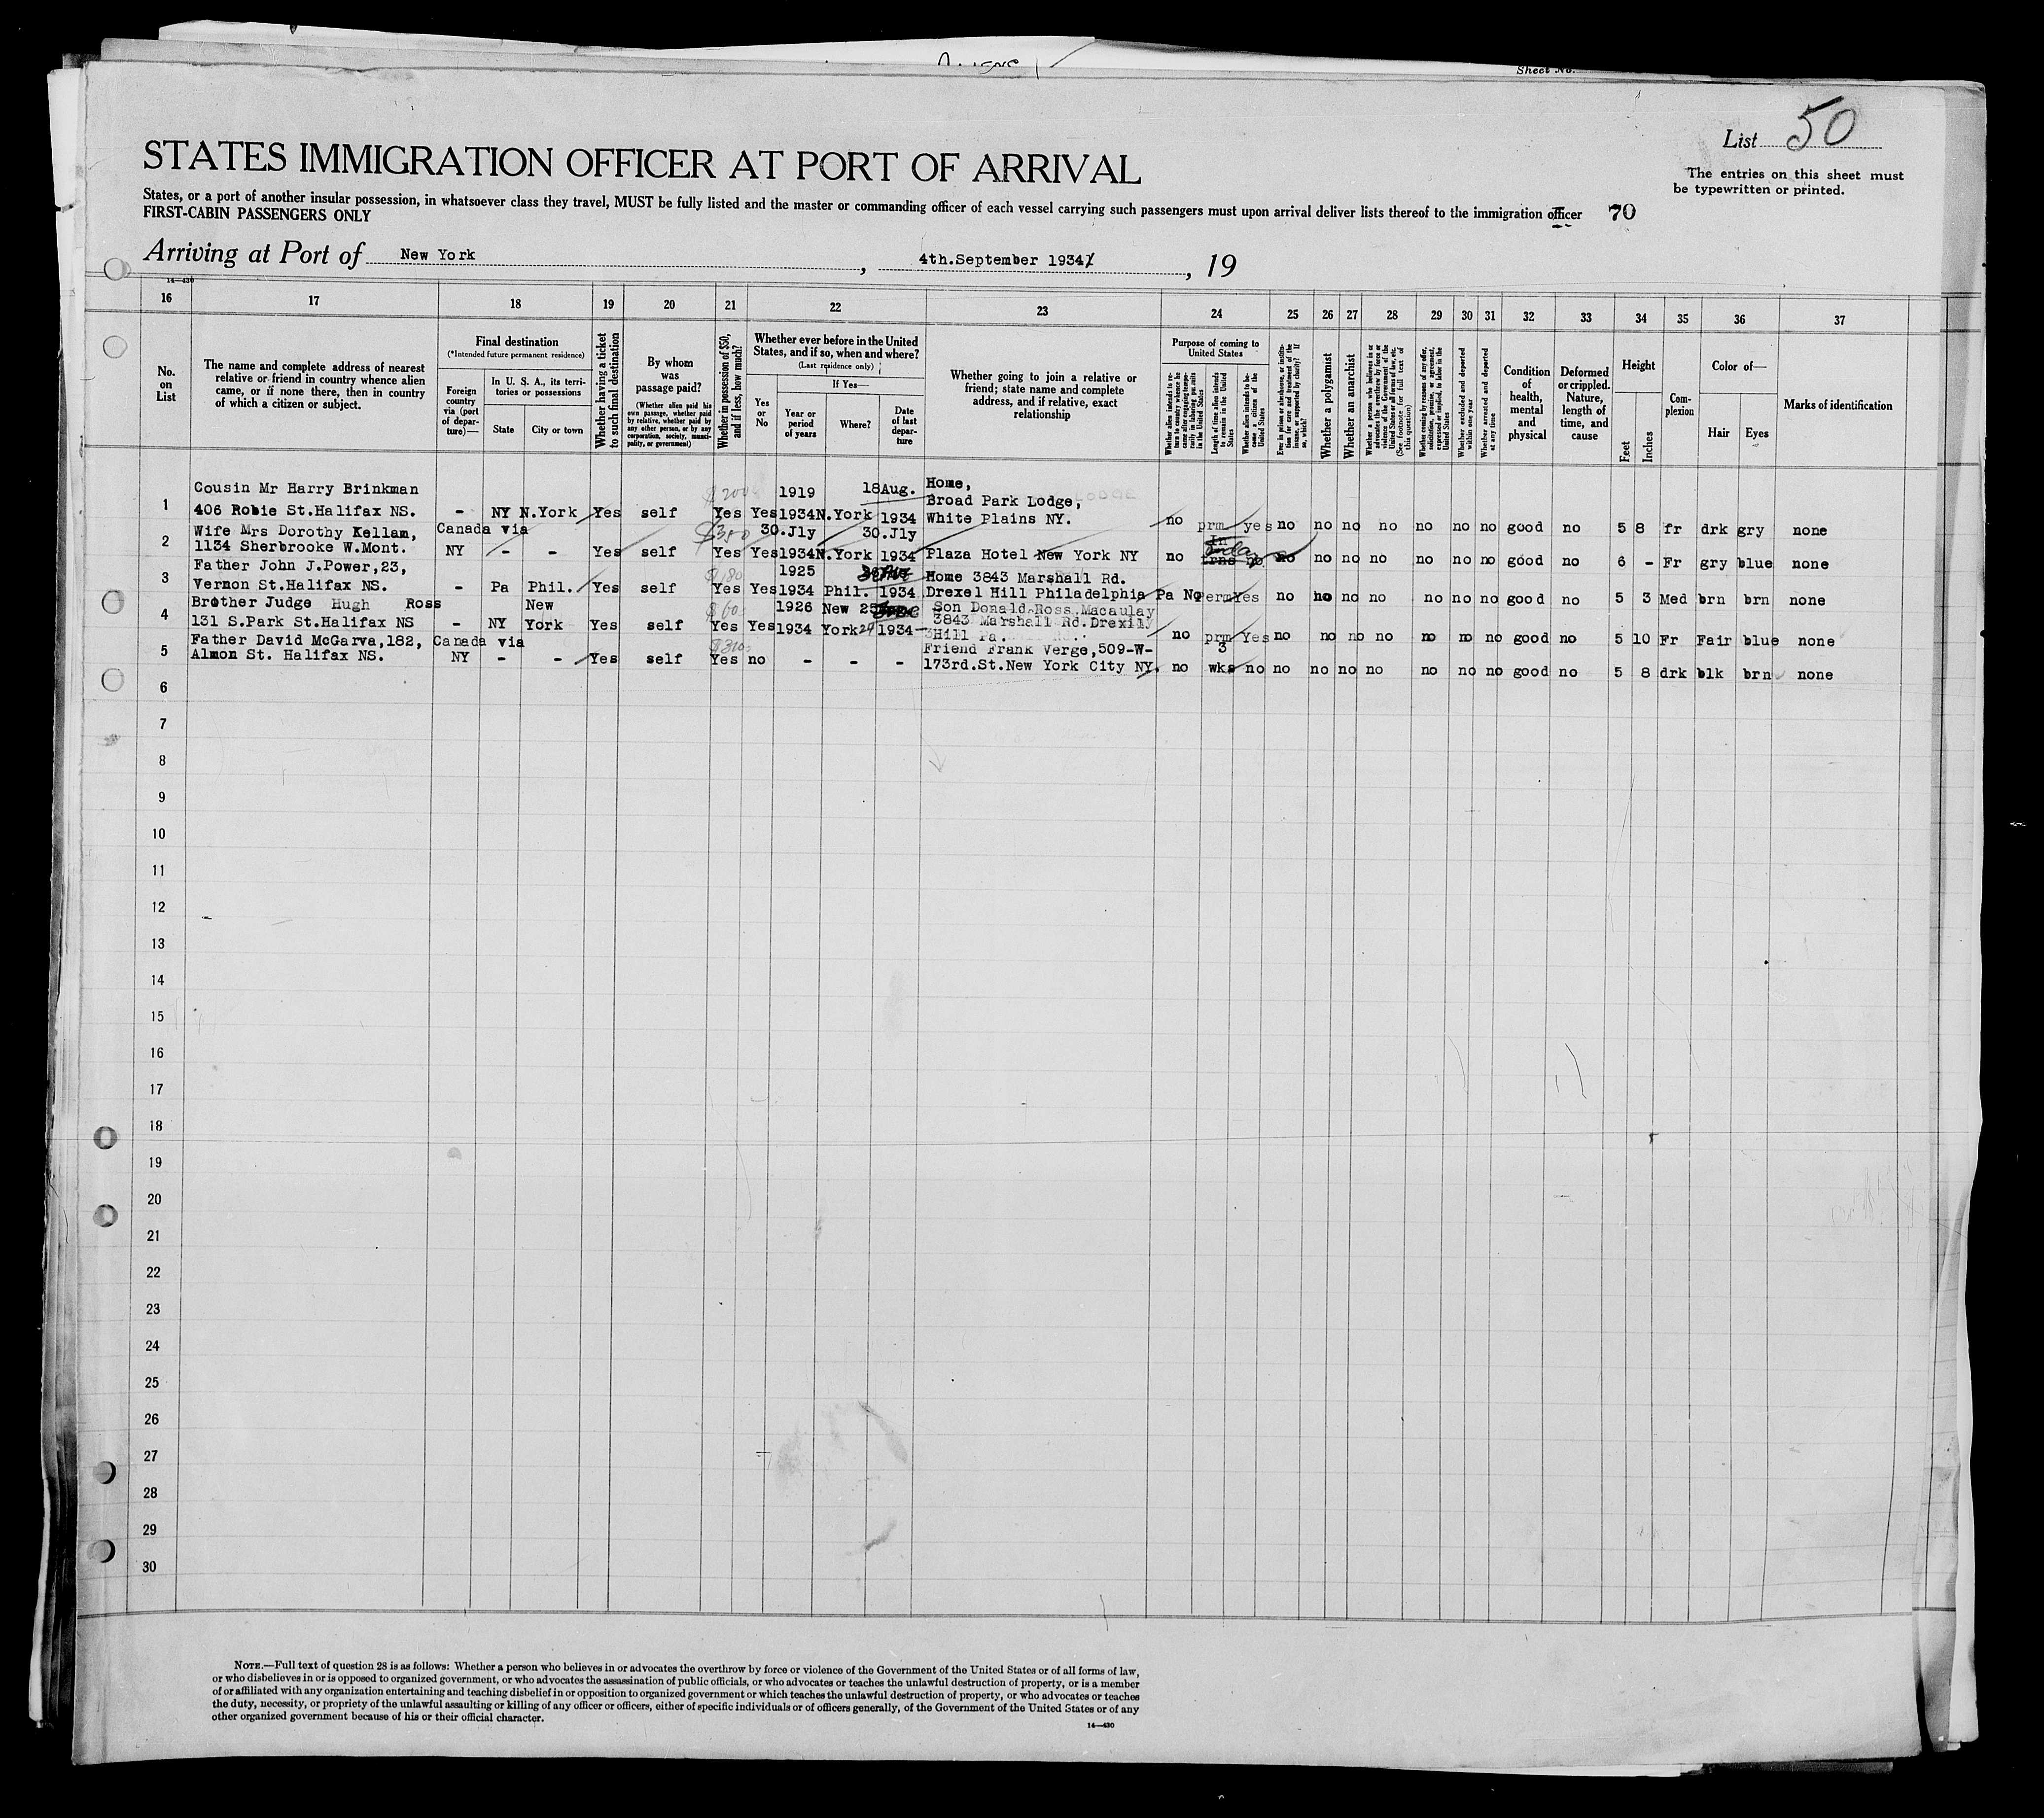 Sheet No.
List 50
STATES IMMIGRATION OFFICER AT PORT OF ARRIVAL
The entries on this sheet must
be typewritten or printed.
States, or a port of another insular possession, in whatsoever class they travel, MUST be fully listed and the master or commanding officer of each vessel carrying such passengers must upon arrival deliver lists thereof to the immigration officer 70
FIRST-CABIN PASSENGERS ONLY
Arriving at Port of New York, 4th.September 1934, 19
14-430
16 17 18 19 20 21 22 23 24 25 26 27 28 29 30 31 32 33 34 35 36 37
No. on List
The name and complete address of nearest
relative or friend in country whence alien
came, or if none there, then in country
of which a citizen or subject.
Final destination
(*Intended future permanent residence)
Foreign country via (port of departure)—
In U. S. A., its territories or possessions
State
City or town
Whether having a ticket to such final destination
By whom was passage paid?
(Whether alien paid his own passage, whether paid by relative, whether paid by any other person, or by any corporation, society, municipality, or government)
Whether in possession of $50, and if less, how much?
Whether ever before in the United States, and if so, when and where?
(Last residence only)
Yes or No
If Yes—
Year or period of years
Where?
Date of last departure
Whether going to join a relative or
friend; state name and complete
address, and if relative, exact
relationship
Purpose of coming to United States
Whether alien intends to return to country whence he came after engaging temporarily in laboring pursuits in the United States
Length of time alien intends to remain in the United States
Whether alien intends to become a citizen of the United States
Ever in prison or almshouse, or institution for care and treatment of the insane, or supported by charity? If so, which?
Whether a polygamist
Whether an anarchist
Whether a person who believes in or advocates the overthrow by force or violence of the Government of the United States or all forms of law, etc. (See footnote for full text of this question)
Whether coming by reasons of any offer, solicitation, promise, or agreement, expressed or implied, to labor in the United States
Whether excluded and deported within one year
Whether arrested and deported at any time
Condition of health, mental and physical
Deformed or crippled. Nature, length of time, and cause
Height
Feet
Inches
Complexion
Color of—
Hair
Eyes
Marks of identification
1 Cousin Mr Harry Brinkman 1919 18Aug. Home,
$200 Broad Park Lodge,
406 Robie St.Halifax NS. - NY N.York Yes self Yes Yes 1934 N.York 1934 White Plains NY. no prm yes no no no no no no no good no 5 8 fr drk gry none
2 Wife Mrs Dorothy Kellam, Canada via $350 30.Jly 30.Jly In
1134 Sherbrooke W.Mont. NY - - Yes self Yes Yes 1934 N.York 1934 Plaza Hotel New York NY no trns no no no no no no no no good no 6 - Fr gry blue none
3 Father John J.Power,23, $180 1925 Home 3843 Marshall Rd.
Vernon St.Halifax NS. - Pa Phil. Yes self Yes Yes 1934 Phil. 1934 Drexel Hill Philadelphia Pa No Perm Yes no no no no no no no good no 5 3 Med brn brn none
4 Brother Judge Hugh Ross New $60 1926 New 25 Son Donald Ross Macaulay
3843 Marshall Rd.Drexil
131 S.Park St.Halifax NS - NY York Yes self Yes Yes 1934 York 1934 Hill Pa. no prm Yes no no no no no no no good no 5 10 Fr Fair blue none
5 Father David McGarva,182, Canada via $310 Friend Frank Verge,509-W- 3
Almon St. Halifax NS. NY - - Yes self Yes no - - - 173rd.St.New York City NY. no wks no no no no no no no no good no 5 8 drk blk brn none
6
7
8
9
10
11
12
13
14
15
16
17
18
19
20
21
22
23
24
25
26
27
28
29
30
NOTE.—Full text of question 28 is as follows: Whether a person who believes in or advocates the overthrow by force or violence of the Government of the United States or of all forms of law,
or who disbelieves in or is opposed to organized government, or who advocates the assassination of public officials, or who advocates or teaches the unlawful destruction of property, or is a member
of or affiliated with any organization entertaining and teaching disbelief in or opposition to organized government or which teaches the unlawful destruction of property, or who advocates or teaches
the duty, necessity, or propriety of the unlawful assaulting or killing of any officer or officers, either of specific individuals or of officers generally, of the Government of the United States or of any
other organized government because of his or their official character.
14-430